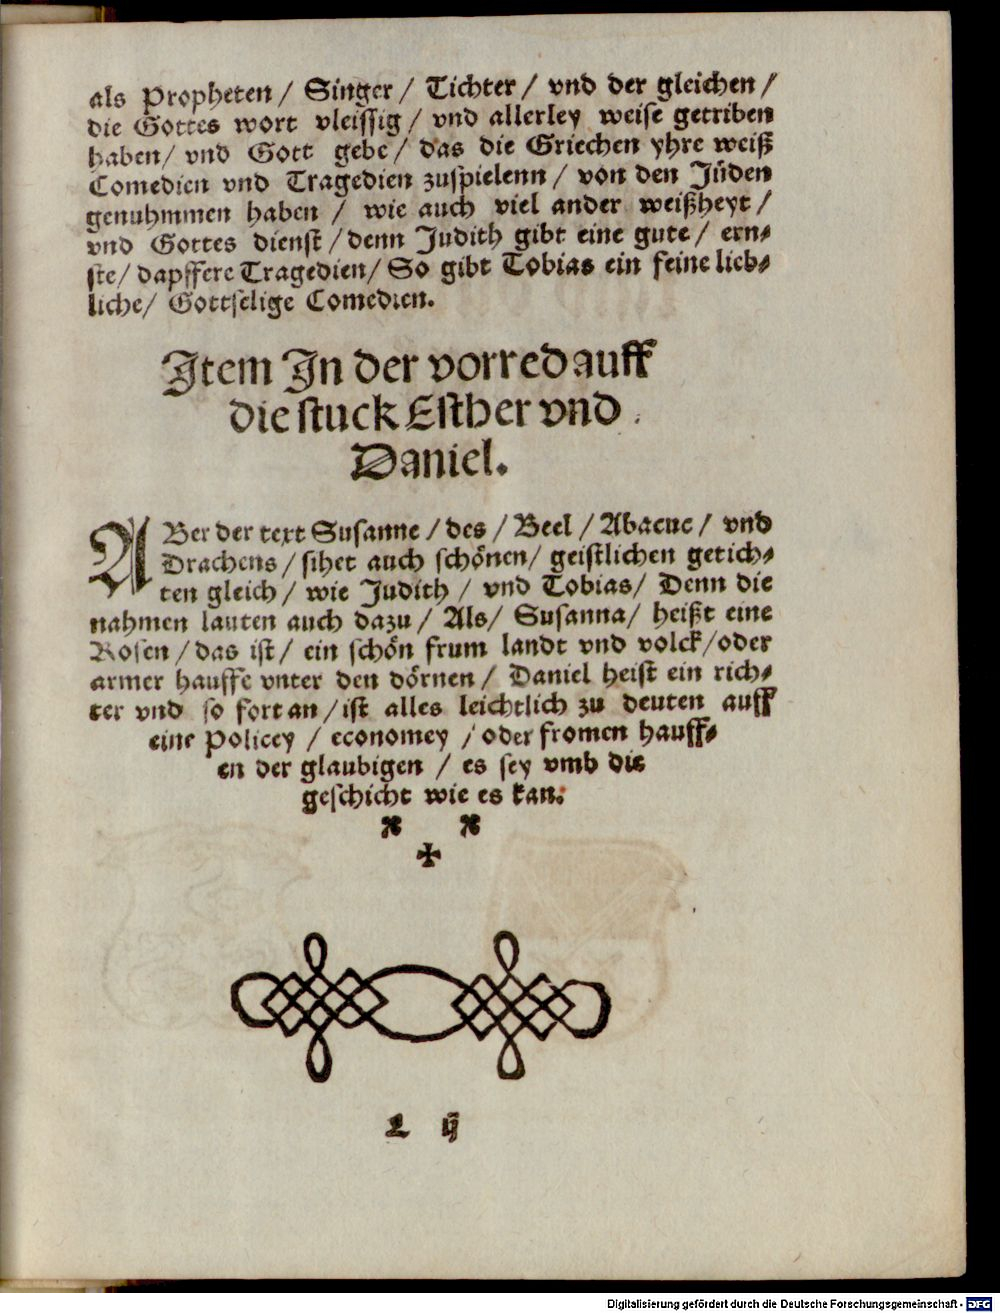 als Propheten / Singer / Tichter / vnd der gleichen /
die Gottes wort vleissig / vnd allerley weise getriben
haben / vnd Gott gebe / das die Griechen yhre weiß
Comedien vnd Tragedien zuspielenn / von den Jüden
genuhmmen haben / wie auch viel ander weißheyt /
vnd Gottes dienst / denn Judith gibt eine gute / ern⸗
ste / dapffere Tragedien / So gibt Tobias ein feine lieb⸗
liche / Gottselige Comedien.
Item In der vorred auff
die stuck Esther vnd
Daniel.
ABer der text Susanne / des / Beel / Abacuc / vnd
Drachens / sihet auch schönen / geistlichen getich⸗
ten gleich / wie Judith / vnd Tobias / Denn die
nahmen lauten auch dazu / Als / Susanna / heißt eine
Rosen / das ist / ein schön frum landt vnd volck / oder
armer hauffe vnter den dörnen / Daniel heist ein rich⸗
ter vnd so fort an / ist alles leichtlich zu deuten auff
eine Policey / economey / oder fromen hauff⸗
en der glaubigen / es sey vmb die
geschicht wie es kan.
ij
Digitalisierung gefördert durch die Deutsche Forschungsgemeinschaft - DFG